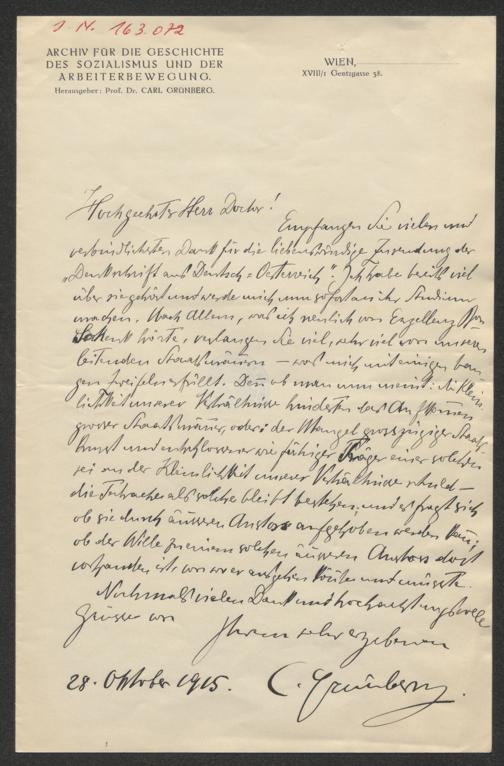 J. N. 163.072
ARCHIV FÜR DIE GESCHICHTE
DES SOZIALISMUS UND DER
ARBEITERBEWEGUNG.
Herausgeber: Prof. Dr. CARL GRÜNBERG.
WIEN,
XVIII/1 Gentzgasse 38.
Hochgeehrter Herr Doctor!
Empfangen Sie vielen und
verbindlichsten Dank für die liebenswürdige Zusendung der
„Denkschrift aus Deutsch-Oesterreich". Ich habe bereits viel
über sie gehört und werde mich nun sofort an ihr Studium
machen. Nach Allem, was ich neulich von Exzellenz von
Schenk hörte, verlangen Sie viel, sehr viel von unseren
leitenden Staatsmännern – was mich mit einigen ban-
gen Zweifeln erfüllt. Denn ob man nun meint: die Klein-
lichkeit unserer Verhältnisse hinderten das Aufkommen
grosser Staatsmänner, oder: der Mangel grosszügiger Staats-
kunst und entschlossener wie fähiger Träger einer solchen
sei an der Kleinlichkeit unserer Verhältnisse schuld –
die Tatsache als solche bleibt bestehen; und es fragt sich
ob sie durch äusseren Anstoss aufgehoben werden kann;
ob der Wille zu einem solchen äusseren Anstoss dort
vorhanden ist, von wo er ausgehen könnte und müsste.
Nochmals vielen Dank und hochachtungsvolle
Grüsse von
Ihrem sehr ergebenen
28. Oktober 1915. C. Grünberg.